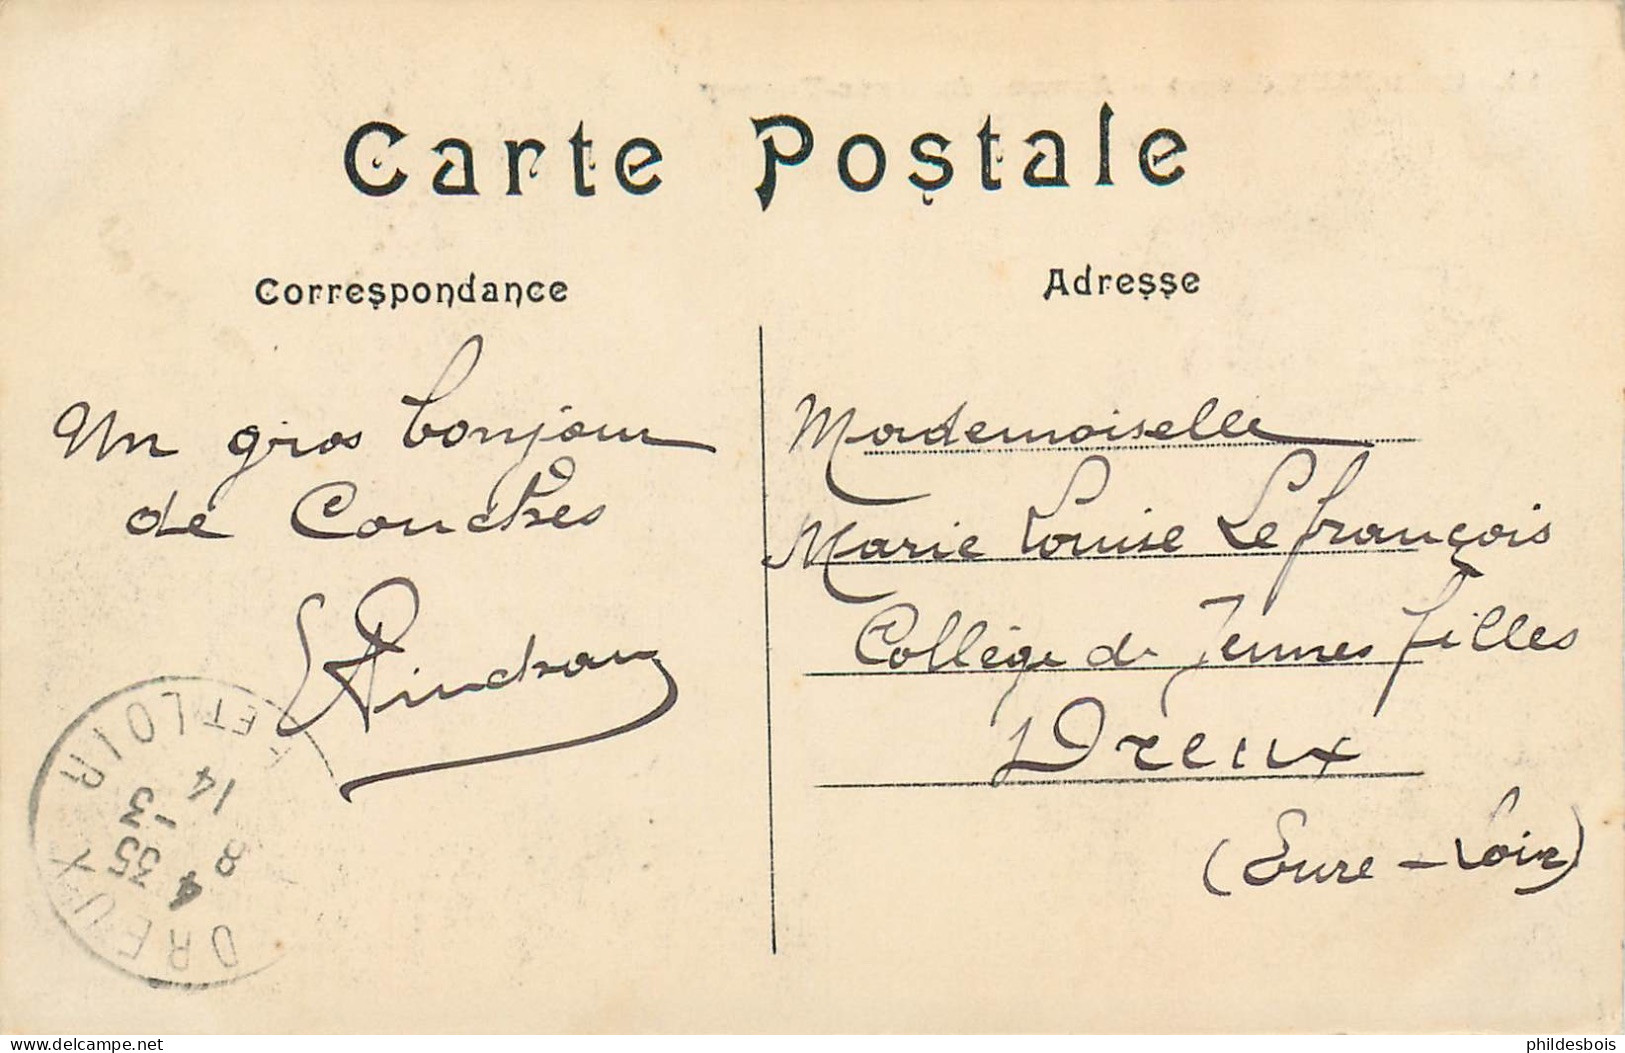 Carte Postale
Correspondance
Adresse
Un gros bonjour
de Conches
Mademoiselle
Marie Louise Lefrançois
Collège de Jeunes filles
Dreux
(Eure-Loir)
DREUX
ET LOIR
4 35
8 -3
14
phildesbois